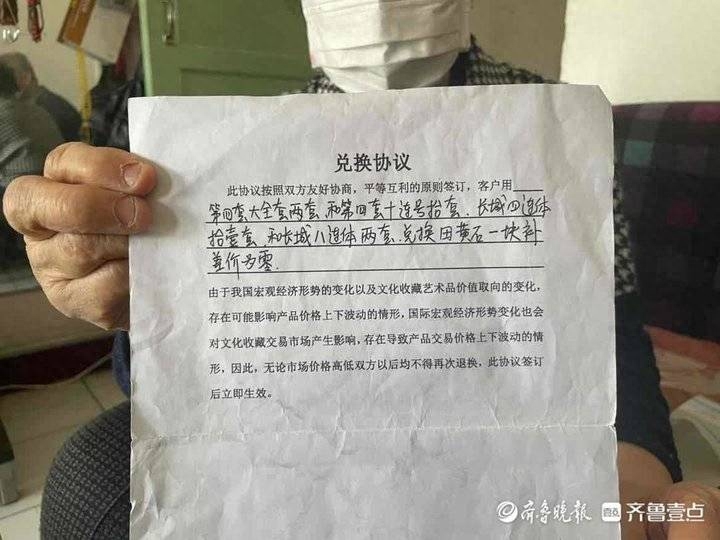 兑换协议
此协议按照双方友好协商，平等互利的原则签订，客户用
第四套大全套两套、和第四套十连号拾套、长城四连体
拾壹套、和长城八连体两套、兑换田黄石一块补
差价为零
由于我国宏观经济形势的变化以及文化收藏艺术品价值取向的变化，
存在可能影响产品价格上下波动的情形，国际宏观经济形势变化也会
对文化收藏交易市场产生影响，存在导致产品交易价格上下波动的情
形，因此，无论市场价格高低双方以后均不得再次退换，此协议签订
后立即生效。
齐鲁晚报 齐鲁壹点